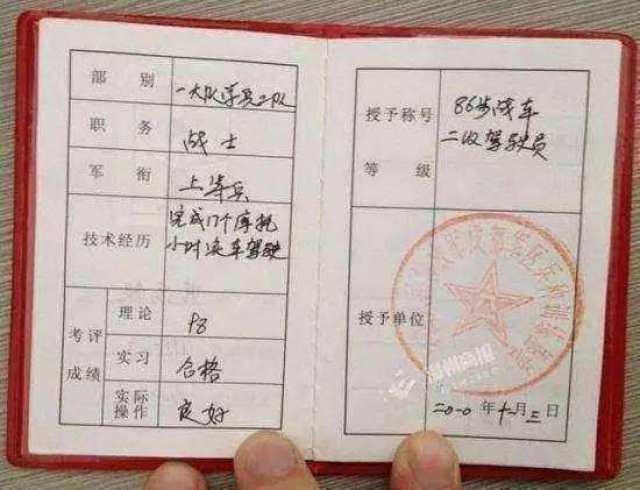 部别 一大队学员二队
职务 战士
军衔 上等兵
技术经历 完成17个摩托
小时决车驾驶
考评成绩
理论 98
实习 合格
实际操作 良好
授予称号 86步战车
等级 二级驾驶员
授予单位
二〇一〇年十一月三日